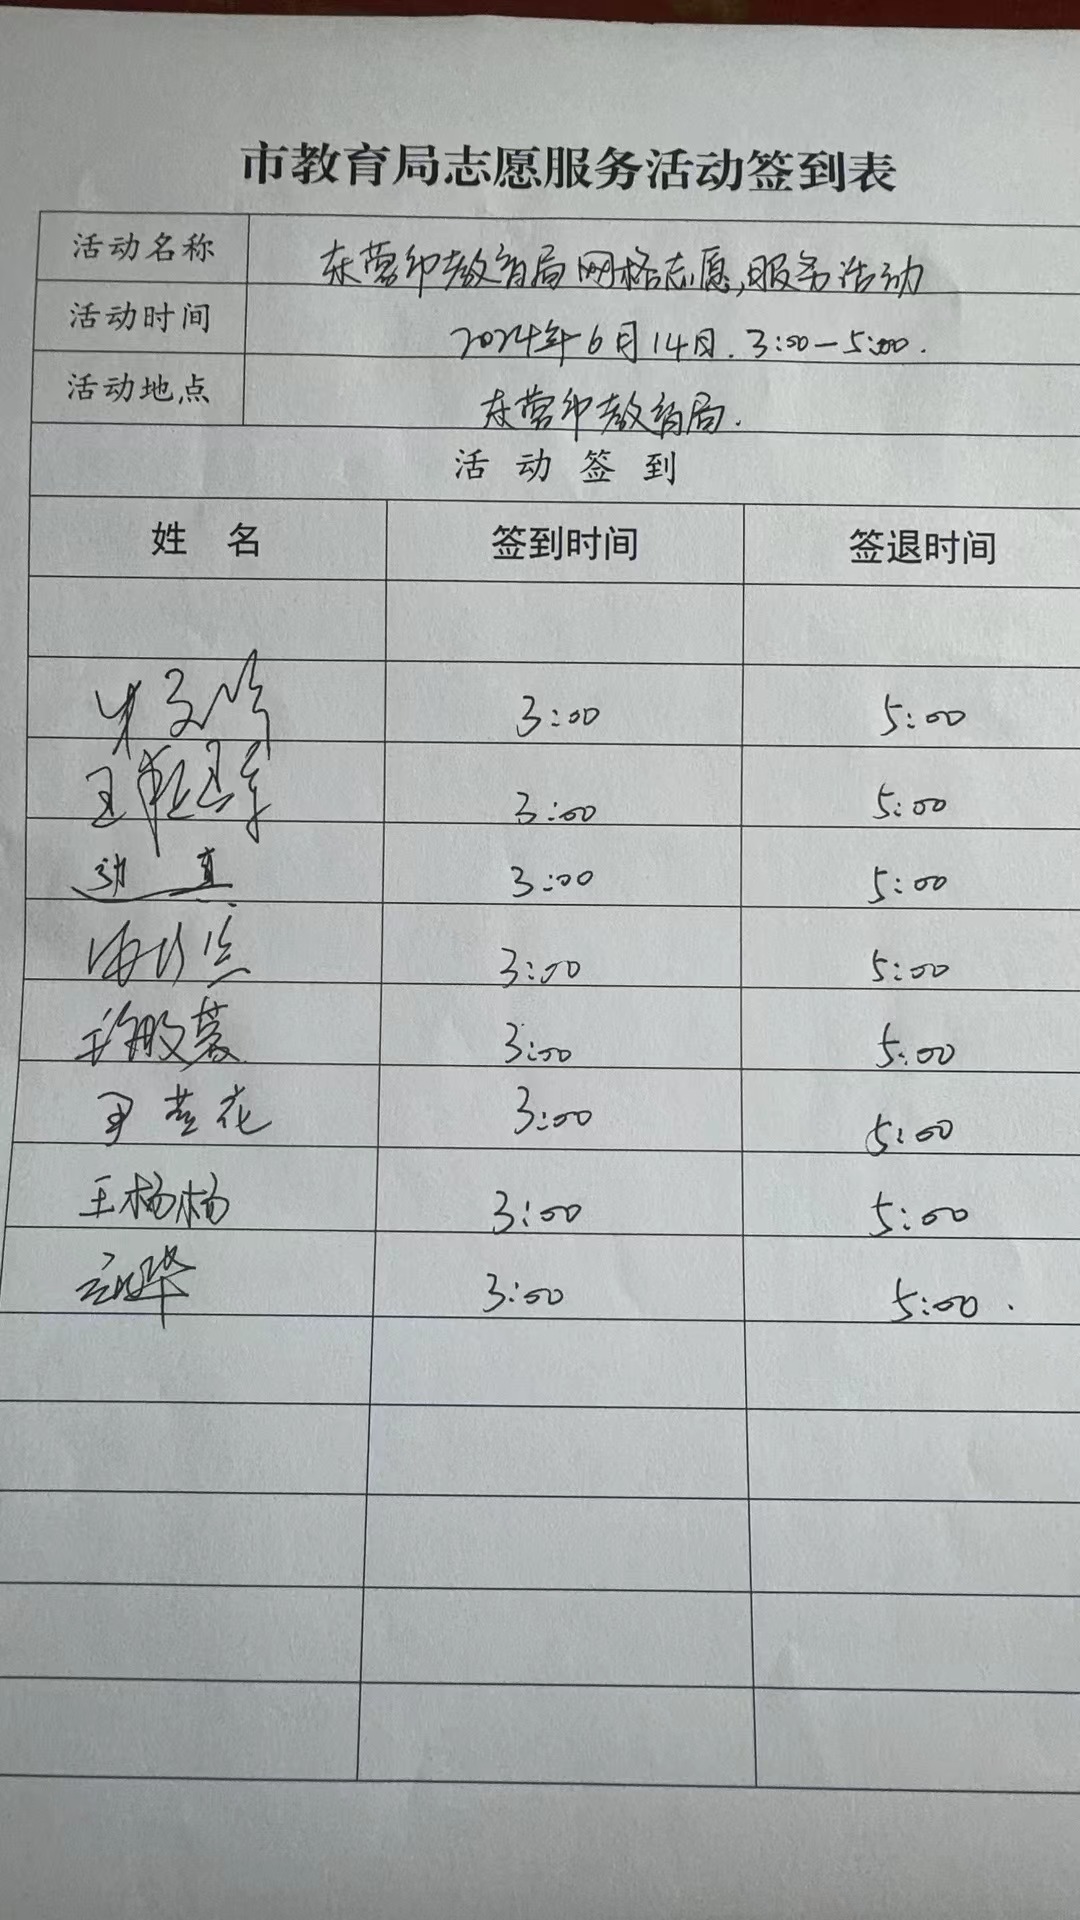 市教育局志愿服务活动签到表
活动名称 东营市教育局网格志愿服务活动
活动时间 2024年6月14日. 3:00—5:00.
活动地点 东营市教育局.
活动签到
姓 名 签到时间 签退时间
3:00 5:00
3:00 5:00
3:00 5:00
3:00 5:00
3:00 5:00
3:00 5:00
王杨杨 3:00 5:00
3:00 5:00.